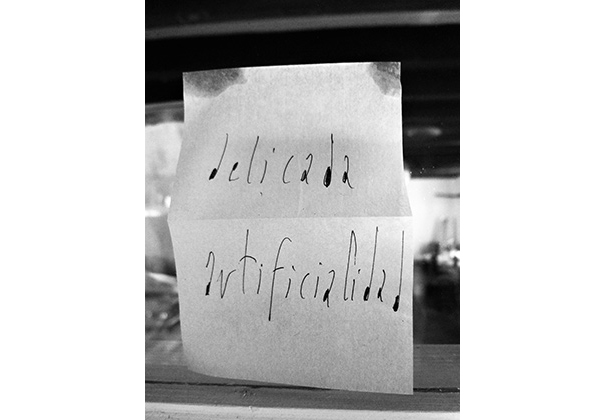 delicada
artificialidad